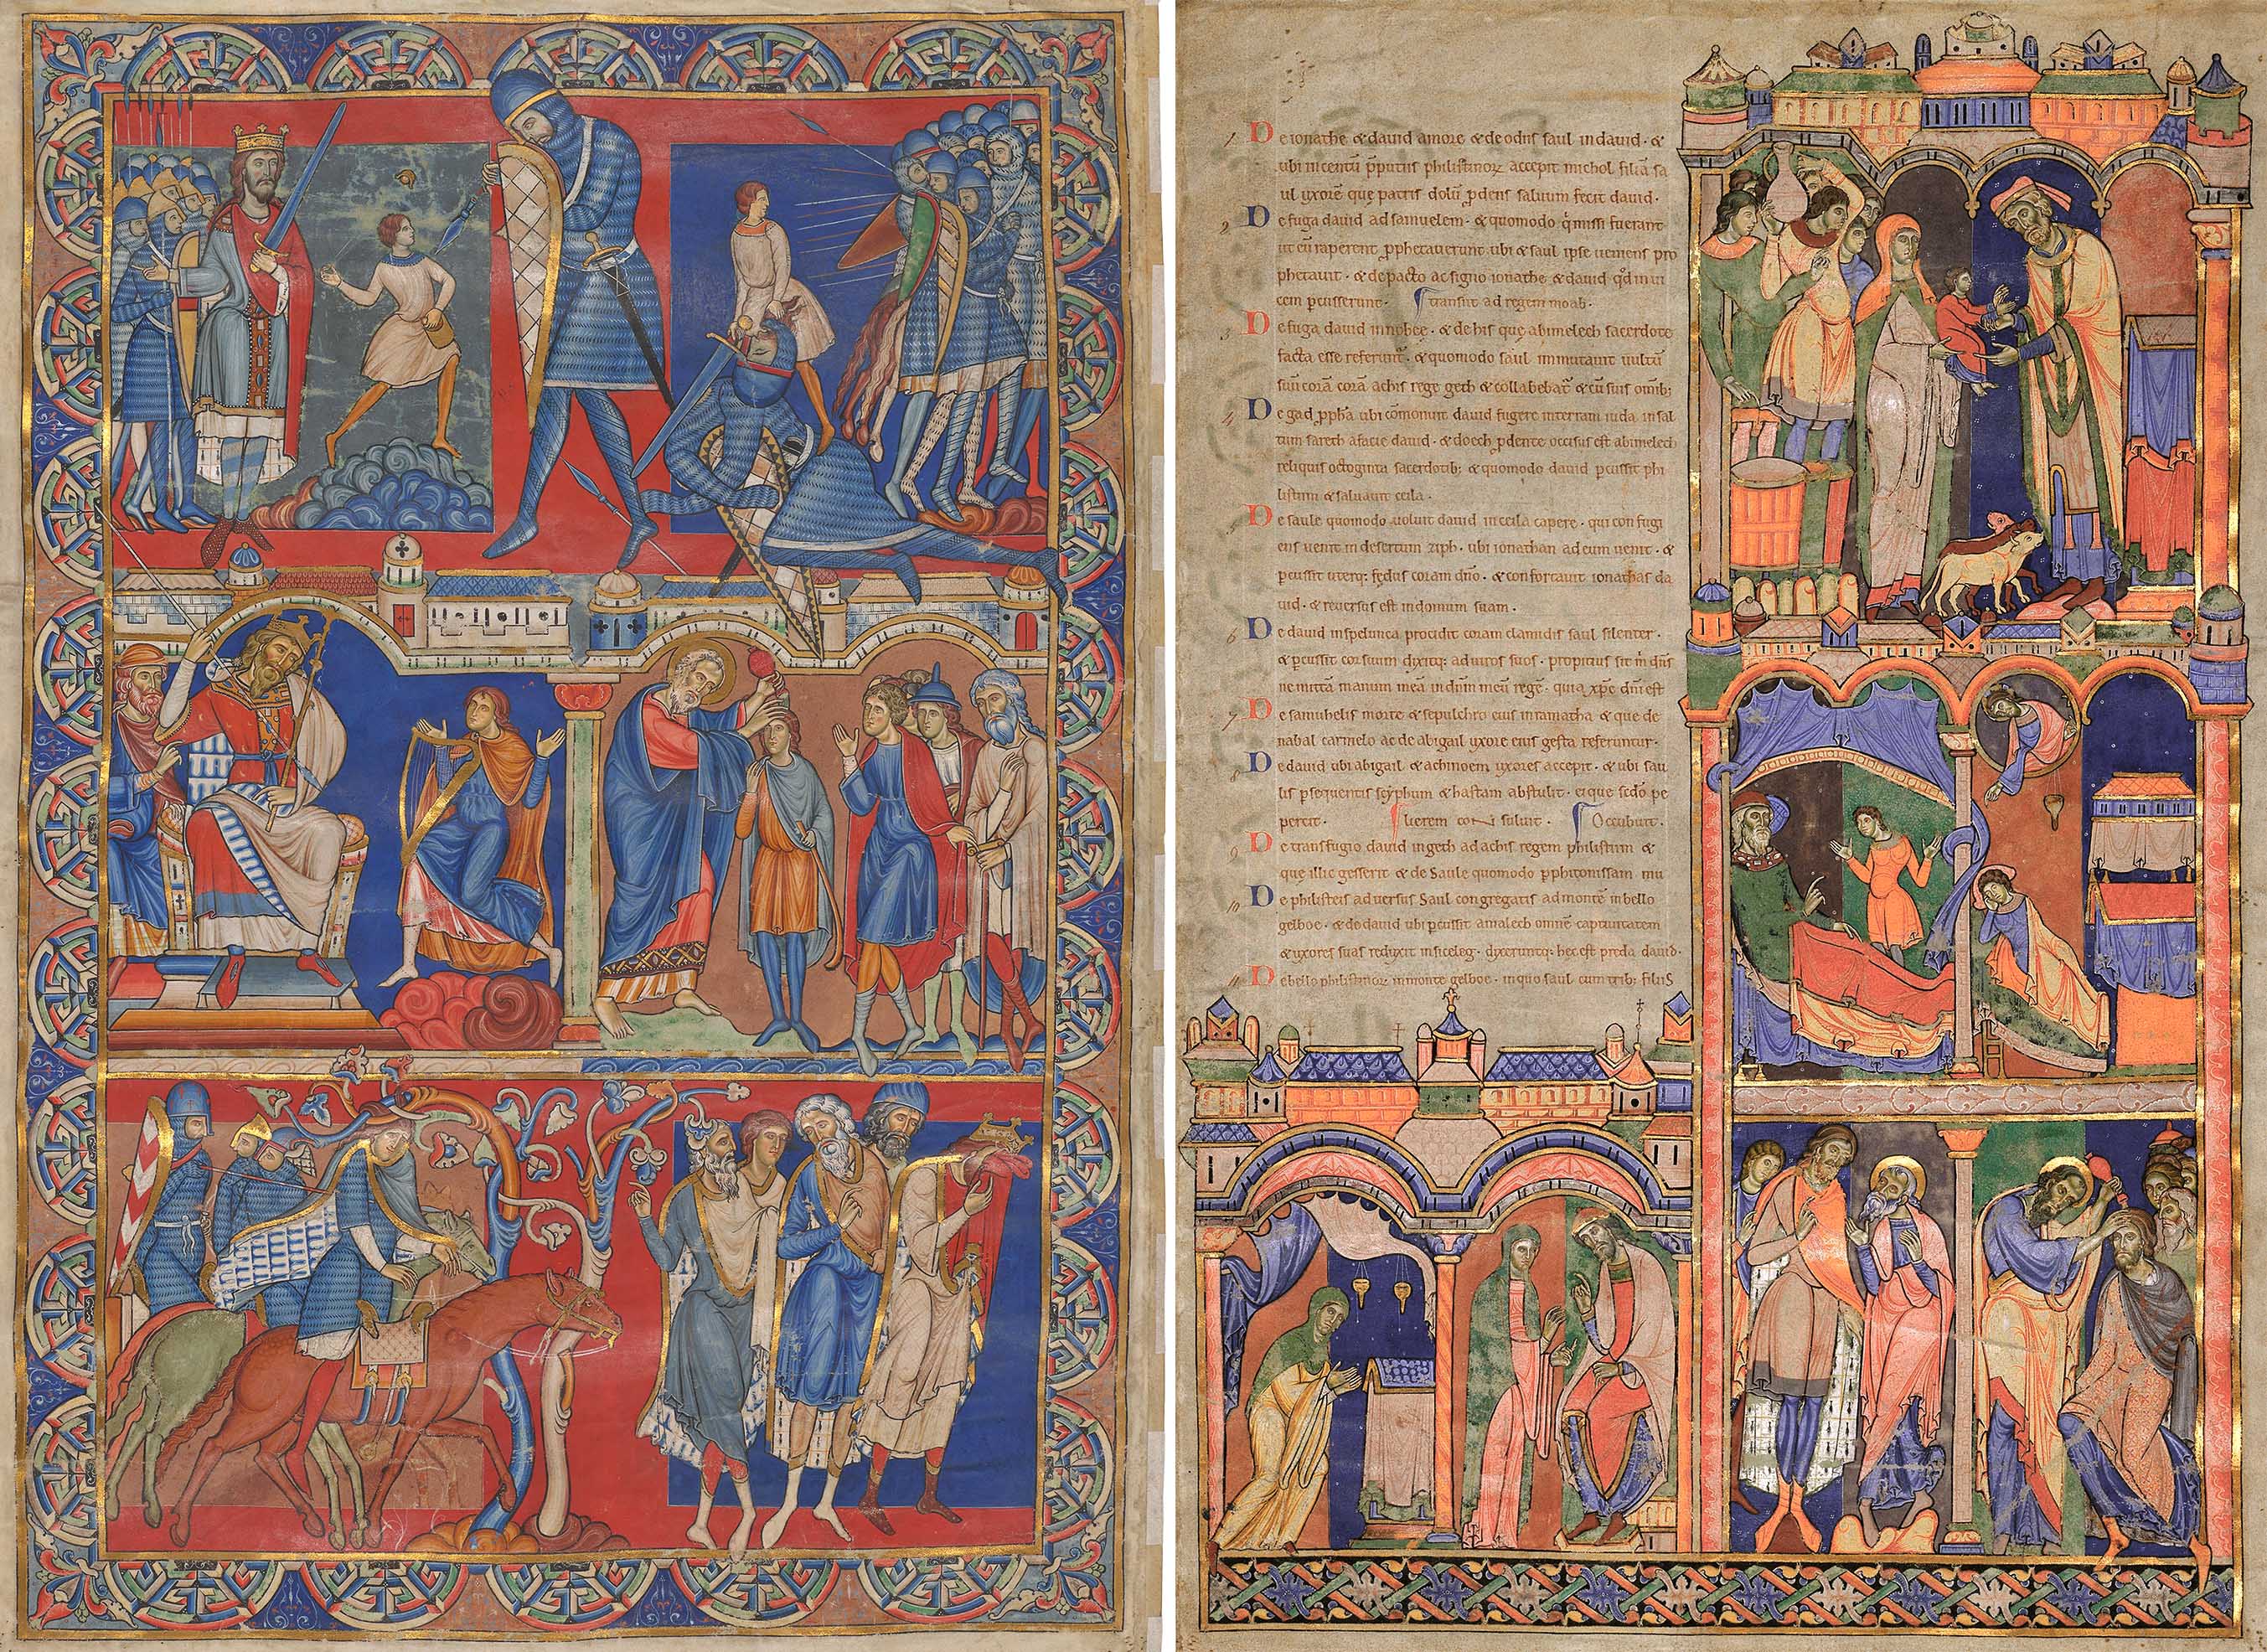 1 De ionathe & david amore & de odiis saul in david · &
ubi in centū p̄putiis philistinoꝝ accepit michol filiā sa
ul uxorē que patris dolū ꝑdens saluum fecit david ·
2 De fuga david ad samuelem · & quomodo q̇ missi fuerant
ut eū raperent ꝓphetaverunt · ubi & saul ipse veniens pro
phetavit · & de pacto ac signo ionathe & david qd̄ in vi
cem ꝑcusserunt · transiit ad regem moab ·
3 De fuga david in nobee · & de his que abimelech sacerdote
facta esse referunt̄ · & quomodo saul immutavit vultū
suū corā corā achis rege geth & collabebat̄ & cū suis omīb;
4 De gad ꝓpħa ubi cōmonuit david fugere in terram iuda in sal
tum sareth a facie david · & doech ꝓdente occisus est abimelech
reliquis octoginta sacerdotib; & quomodo david ꝑcussit phi
listiim & salvavit ceila ·
5 De saule quomodo voluit david in ceila capere · qui con fugi
ens venit in desertum ziph · ubi ionathan ad eum venit · &
ꝑcussit uterq; fedus coram dn̄o · & confortavit ionathas da
vid · & reversus est in domum suam ·
6 De david in spelunca procidit coram clamidis saul silenter ·
& ꝑcussit cor suum dixitq; ad viros suos · propitius sit m̄ dn̄s
ne mittā manum meā in dn̄m meū regē · quia xp̄c dn̄i est
7 De samuhelis morte & sepulchro eius in ramatha & que de
nabal carmelo ac de abigail uxore eius gesta referuntur ·
8 De david ubi abigail & achinoem uxores accepit · & ubi sau
lis ꝑsequentis scyphum & hastam abstulit · eique sedō pe
percit · lierem consuluit · Occubuit ·
9 De transfugio david in geth ad achis regem philistiim &
que illic gesserit & de Saule quomodo ꝑphitonissam mu
10 De philisteis adversus Saul congregatis ad montē in bello
gelboe · & de david ubi ꝑcussit amalech omnē captivitatem
& uxores suas reduxit in siceleg · dixeruntq; hec est preda david ·
11 De bello philistinoꝝ in monte gelboe · in quo saul cum trib; filiis